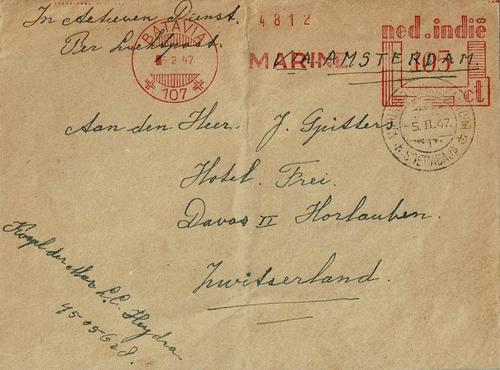 In Actieven Dienst.
Per Luchtpost.
BATAVIA
2 47
107
4812
MARINE
VIA AMSTERDAM.
ned.indië
107
ct
5.II.47.
SOERABAJA
Aan den Heer. J. Gpitters
Hotel. Frei.
Davos II Horlauben.
Zwitserland.
Korpl der Mar. L.C. Heydra
45 05 628.